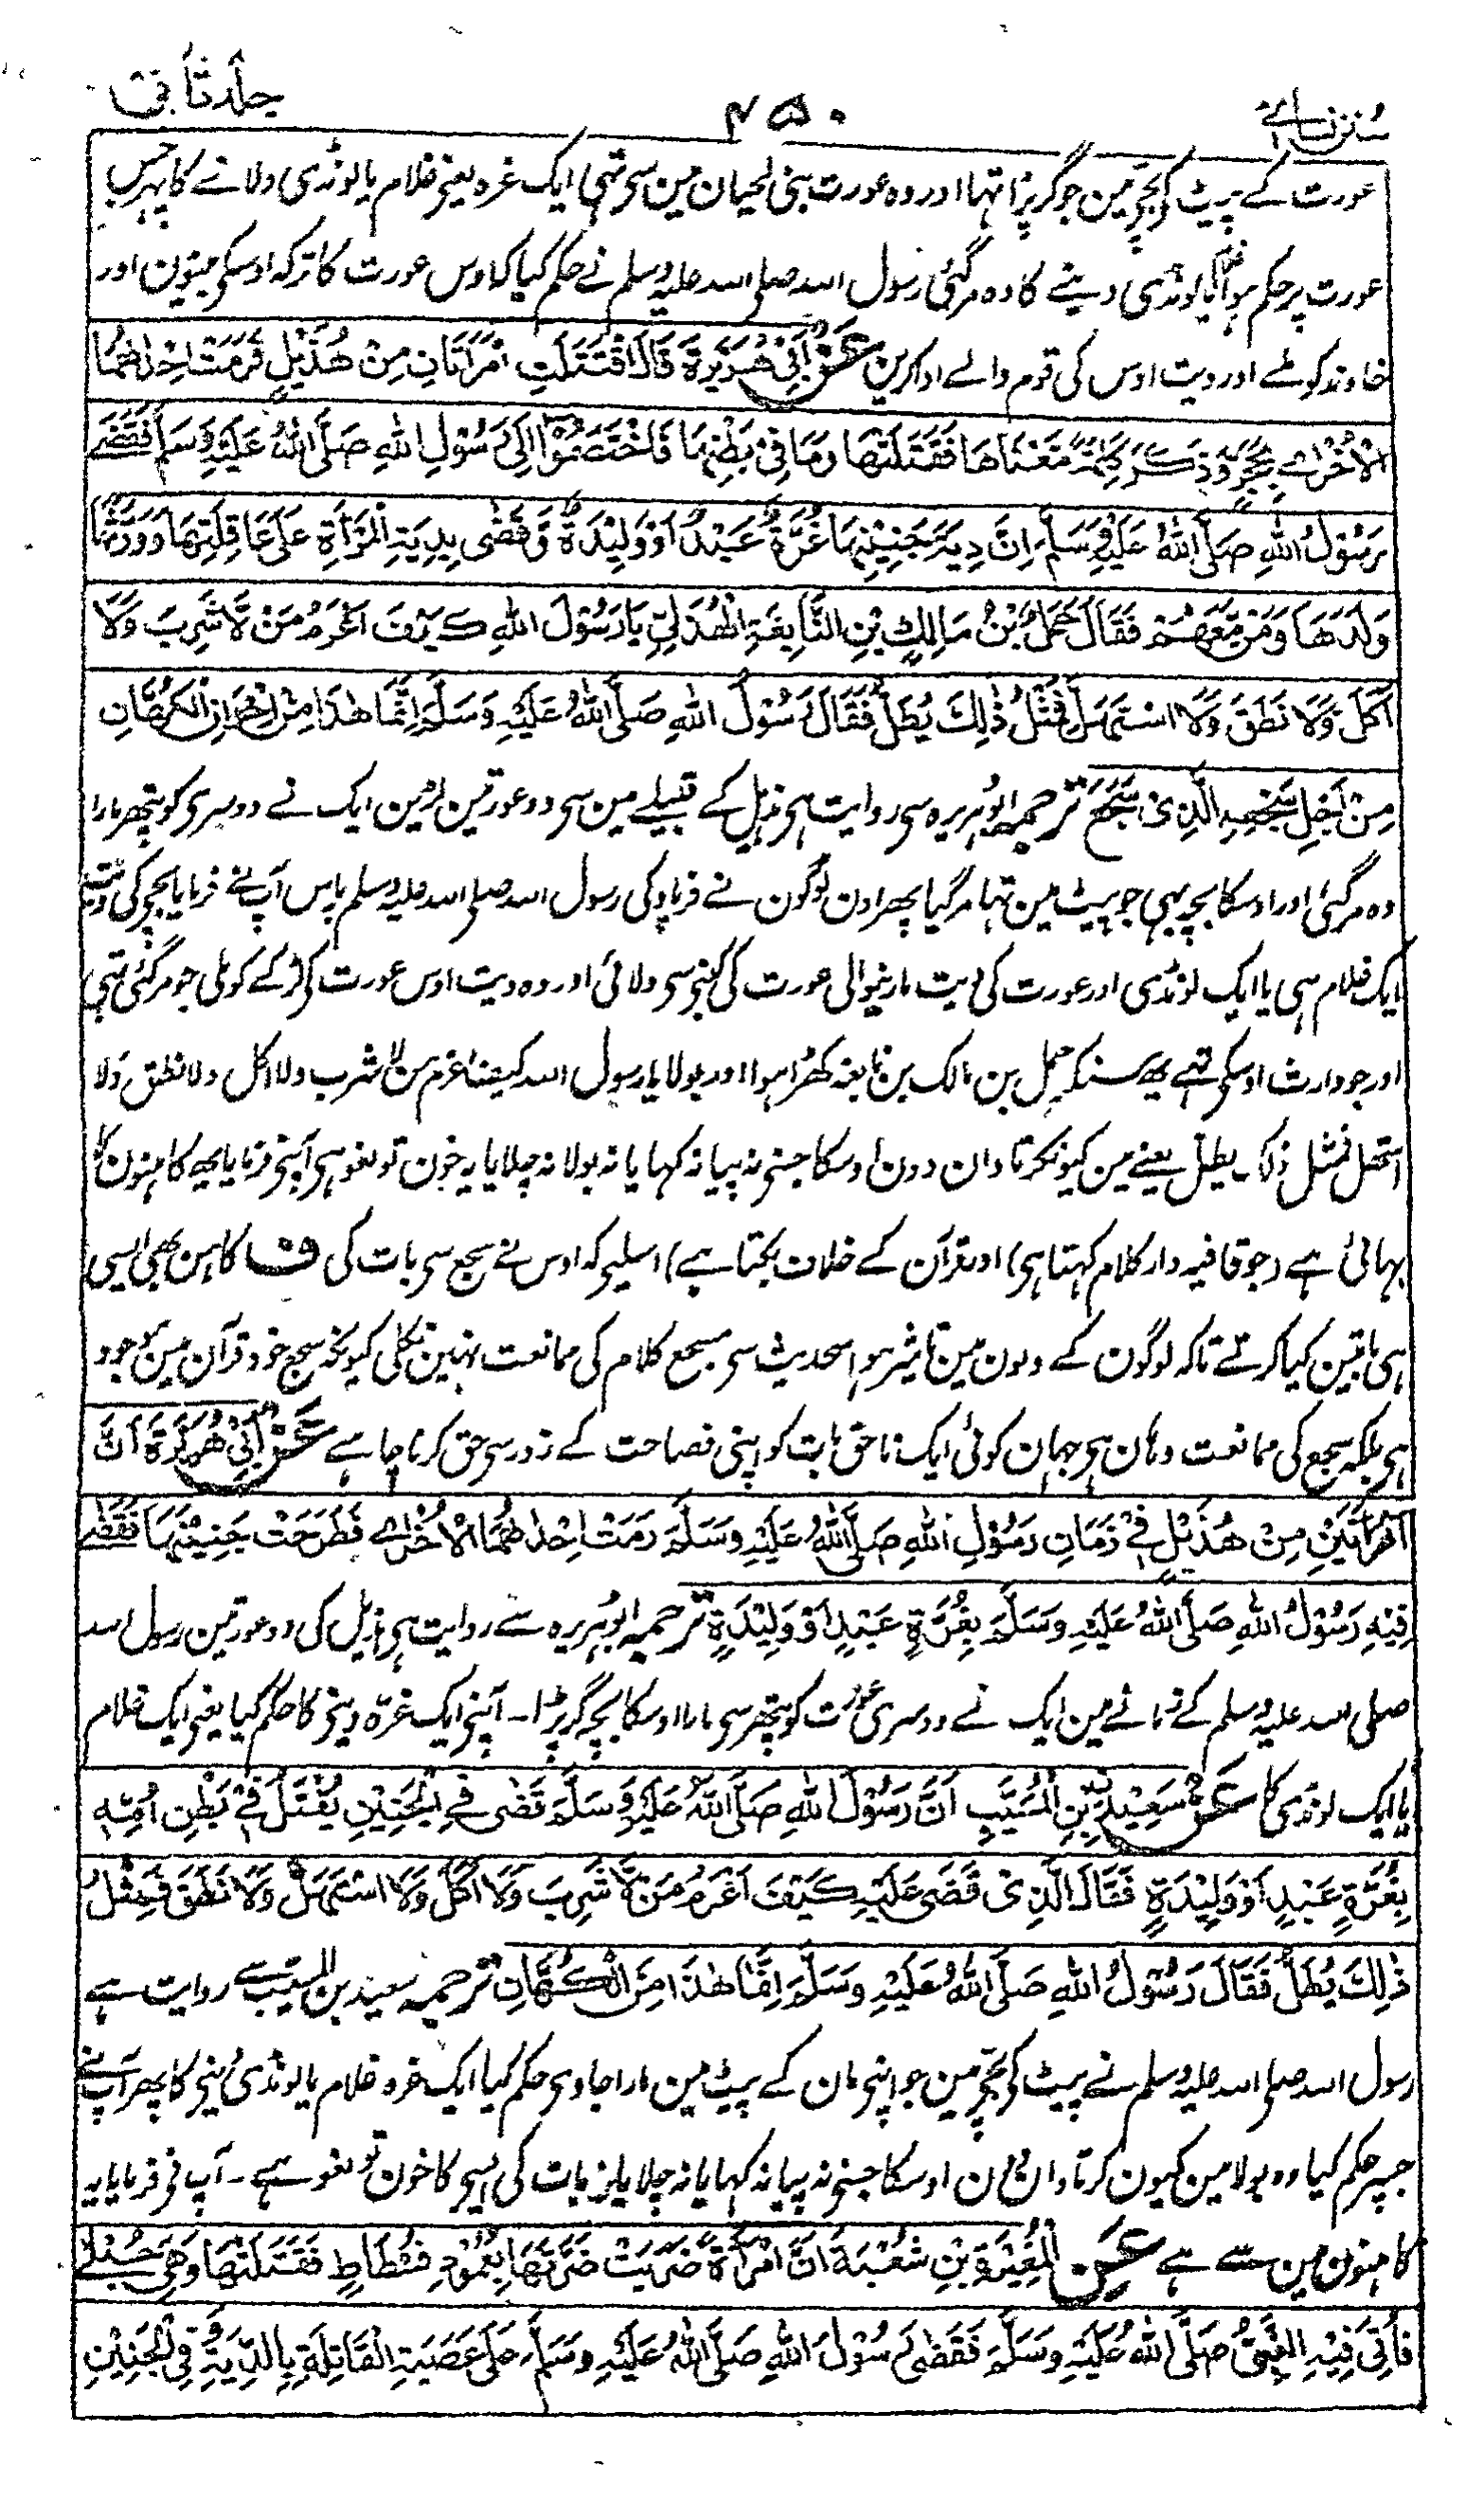 سنن نسائے ۴۵۰ جلد ثانی
عورت کے پیٹ کے بچے مین جو گر پڑا تہا اور وہ عورت بنی لحیان مین سی تہی ایک غرہ یعنے غلام یا لونڈی دلانے کا پہر جس
عورت پر حکم ہوا تہا لونڈی دینے کا وہ مر گئی رسول اللہ صلی اللہ علیہ وسلم نے حکم کیا کہ اوس عورت کا ترکہ اوسکی بیٹون اور
خاوند کو ملے اور دیت اوس کی قوم والے ادا کرین عَنْ اَبِیْ هُرَيْرَةَ قَالَ اقْتَتَلَتِ امْرَاَتَانِ مِنْ هُذَيْلٍ فَرَمَتْ اِحْدٰىهُمَا
الْاُخْرٰى بِحَجَرٍ وَذَكَرَ كَلِمَةً مَّعْنَاهَا فَقَتَلَتْهَا وَمَا فِيْ بَطْنِهَا فَاخْتَصَمُوْا اِلٰى رَسُوْلِ اللهِ صَلَّى اللهُ عَلَيْهِ وَسَلَّمَ فَقَضٰى
رَسُوْلُ اللهِ صَلَّى اللهُ عَلَيْهِ وَسَلَّمَ اِنَّ دِيَةَ جَنِيْنِهَا غُرَّةٌ عَبْدٌ اَوْ وَلِيْدَةٌ وَّقَضٰى بِدِيَةِ الْمَرْاَةِ عَلٰى عَاقِلَتِهَا وَوَرَّثَهَا
وَلَدَهَا وَمَنْ مَّعَهُمْ فَقَالَ حَمَلُ بْنُ مَالِكِ بْنِ النَّابِغَةِ الْهُذَلِيِّ يَا رَسُوْلَ اللهِ كَيْفَ اَغْرَمُ مَنْ لَّا شَرِبَ وَلَا
اَكَلَ وَلَا نَطَقَ وَلَا اسْتَهَلَّ فَمِثْلُ ذٰلِكَ يُطَلُّ فَقَالَ رَسُوْلُ اللهِ صَلَّى اللهُ عَلَيْهِ وَسَلَّمَ اِنَّمَا هٰذَا مِنْ اِخْوَانِ الْكُهَّانِ
مِنْ اَجْلِ سَجْعِهِ الَّذِیْ سَجَعَ ترجمہ ابو ہریرہ سی روایت ہی ہذیل کے قبیلے مین سی دو عورتین لڑین ایک نے دوسری کو پتھر مارا
وہ مر گئی اور اوسکا بچہ بہی جو پیٹ مین تہا مر گیا پھر اون لوگون نے فریاد کی رسول اللہ صلی اللہ علیہ وسلم پاس آپ نے فرمایا بچے کی دیت
ایک غلام ہی یا ایک لونڈی اور عورت کی دیت مارنیوالی عورت کی کنبے سی دلائی اور وہ دیت اوس عورت کے لڑکے کو ملی جو مر گئی تہی
اور جو وارث اوسکی تہے یہ سنکر حمل بن مالک بن نابغہ کھڑا ہوا اور بولا یا رسول اللہ کیف اغرم من لا شرب ولا اکل ولا نطق ولا
استہل فمثل ذلک یطل یعنے مین کیونکر تاوان دون اوسکا جسنے نہ پیا نہ کہایا نہ بولا نہ چلایا یہ خون تو لغو ہی آپنے فرمایا یہ کاہنون کا
بہائی ہے (جو قافیہ دار کلام کہتا ہی) اور قرآن کے خلاف بکتا ہے) اسلیے کہ اوس نے سجع سی بات کی ف کاہن بھی ایسی
ہی باتین کیا کرتے تاکہ لوگون کے دلون مین تاثیر ہو اس حدیث سی مسجع کلام کی ممانعت نہین نکلی کیونکہ سجع خود قرآن مین موجود
ہی بلکہ سجع کی ممانعت وہان ہی جہان کوئی ایک ناحق بات کو اپنی فصاحت کے زور سی حق کرنا چاہے عَنْ اَبِیْ هُرَيْرَةَ اَنَّ
امْرَاَتَيْنِ مِنْ هُذَيْلٍ فِيْ زَمَانِ رَسُوْلِ اللهِ صَلَّى اللهُ عَلَيْهِ وَسَلَّمَ رَمَتْ اِحْدٰىهُمَا الْاُخْرٰى فَطَرَحَتْ جَنِيْنَهَا فَقَضٰى
فِيْهِ رَسُوْلُ اللهِ صَلَّى اللهُ عَلَيْهِ وَسَلَّمَ بِغُرَّةٍ عَبْدٍ اَوْ وَلِيْدَةٍ ترجمہ ابو ہریرہ سے روایت ہی ہذیل کی دو عورتین رسول اللہ
صلی اللہ علیہ وسلم کے زمانے مین ایک نے دوسری عورت کو پتھر سی مارا اوسکا بچہ گر پڑا۔ آپنے ایک غرّہ دینے کا حکم کیا یعنے ایک غلام
یا ایک لونڈی کا عَنْ سَعِيْدِ بْنِ الْمُسَيَّبِ اَنَّ رَسُوْلَ اللهِ صَلَّى اللهُ عَلَيْهِ وَسَلَّمَ قَضٰى فِي الْجَنِيْنِ يُقْتَلُ فِيْ بَطْنِ اُمِّهٖ
بِغُرَّةٍ عَبْدٍ اَوْ وَلِيْدَةٍ فَقَالَ الَّذِیْ قَضٰى عَلَيْهِ كَيْفَ اَغْرَمُ مَنْ لَّا شَرِبَ وَلَا اَكَلَ وَلَا اسْتَهَلَّ وَلَا نَطَقَ فَمِثْلُ
ذٰلِكَ يُطَلُّ فَقَالَ رَسُوْلُ اللهِ صَلَّى اللهُ عَلَيْهِ وَسَلَّمَ اِنَّمَا هٰذَا مِنَ الْكُهَّانِ ترجمہ سعید بن المسیب سے روایت ہے
رسول اللہ صلی اللہ علیہ وسلم نے پیٹ کی بچے مین جو اپنی مان کے پیٹ مین مارا جاوی حکم کیا ایک غرہ غلام یا لونڈی دینے کا پھر آپ نے
جسپر حکم کیا وہ بولا مین کیون کر تاوان دون اوسکا جسنے نہ پیا نہ کہایا نہ چلایا نہ بات کی ایسی کا خون تو لغو ہے۔ آپ نی فرمایا یہ
کاہنون مین سے ہے عَنِ الْمُغِيْرَةِ بْنِ شُعْبَةَ اَنَّ امْرَاَةً ضَرَبَتْ ضَرَّتَهَا بِعَمُوْدِ فُسْطَاطٍ فَقَتَلَتْهَا وَهِيَ حُبْلٰى
فَاُتِيَ فِيْهِ النَّبِيُّ صَلَّى اللهُ عَلَيْهِ وَسَلَّمَ فَقَضٰى رَسُوْلُ اللهِ صَلَّى اللهُ عَلَيْهِ وَسَلَّمَ عَلٰى عَصَبَةِ الْقَاتِلَةِ بِالدِّيَةِ وَفِي الْجَنِيْنِ